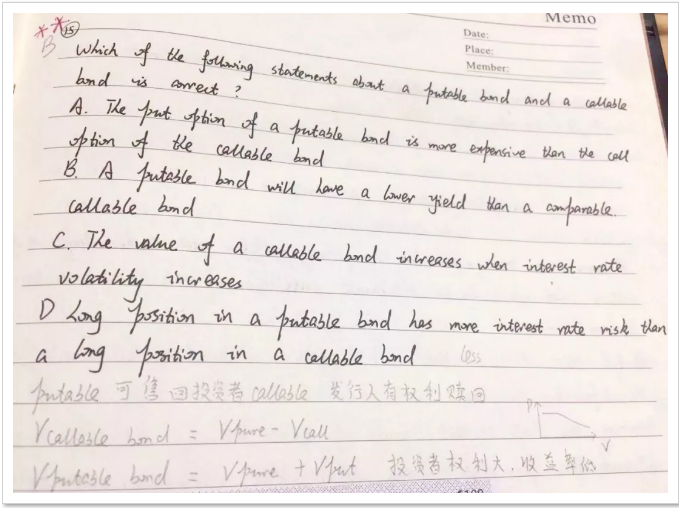 Memo
Date:
Place:
Member:
** ⑮
B Which of the following statements about a putable bond and a callable
bond is correct ?
A. The put option of a putable bond is more expensive than the call
option of the callable bond
B. A putable bond will have a lower yield than a comparable.
callable bond
C. The value of a callable bond increases when interest rate
volatility increases
D Long position in a putable bond has more interest rate risk than
a long position in a callable bond less
putable 可售回投资者 callable 发行人有权利赎回
Vcallable bond = Vpure - Vcall
P
V
Vputable bond = Vpure + Vput 投资者权利大,收益率低